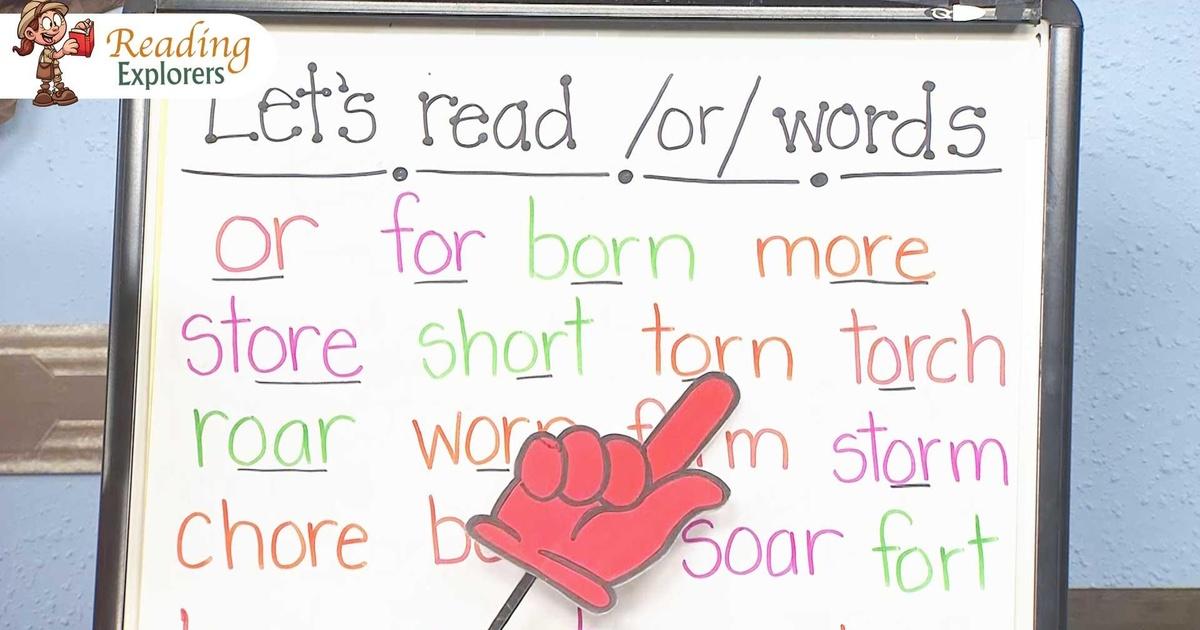 Reading
Explorers
Let's read /or/ words
or for born more
store short torn torch
roar storm
chore soar fort